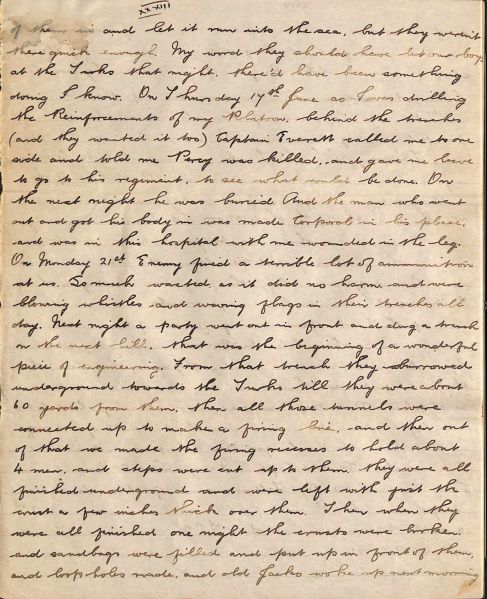 XXXVII
of them in and let it run into the sea, but they weren't
there quick enough. My word they should have let our boys
at the Turks that night, there'd have been something
doing I know. On Thursday 17th June as I was drilling
the Reinforcements of my Platoon, behind the trenches
(and they wanted it too) Captain Everett called me to one
side and told me Percy was killed, and gave me leave
to go to his regiment, to see what could be done. On
the next night he was buried. And the man who went
out and got his body in was made Corporal in his place,
and was in this hospital with me wounded in the leg.
On Monday 21st Enemy fired a terrible lot of ammunition
at us. So much wasted, as it did no harm, and were
blowing whistles and waving flags in their trenches all
day. Next night a party went out in front and dug a trench
on the next hill, that was the beginning of a wonderful
piece of engineering. From that trench they burrowed
underground towards the Turks till they were about
60 yards from them, then all those tunnels were
connected up to make a firing line, and then out
of that we made the firing recesses to hold about
4 men, and steps were cut up to them. They were all
finished underground and were left with just the
crust a few inches thick over them. Then when they
were all finished one night the crusts were broken,
and sandbags were filled and put up in front of them,
and loop holes made, and old Jacko woke up next morning